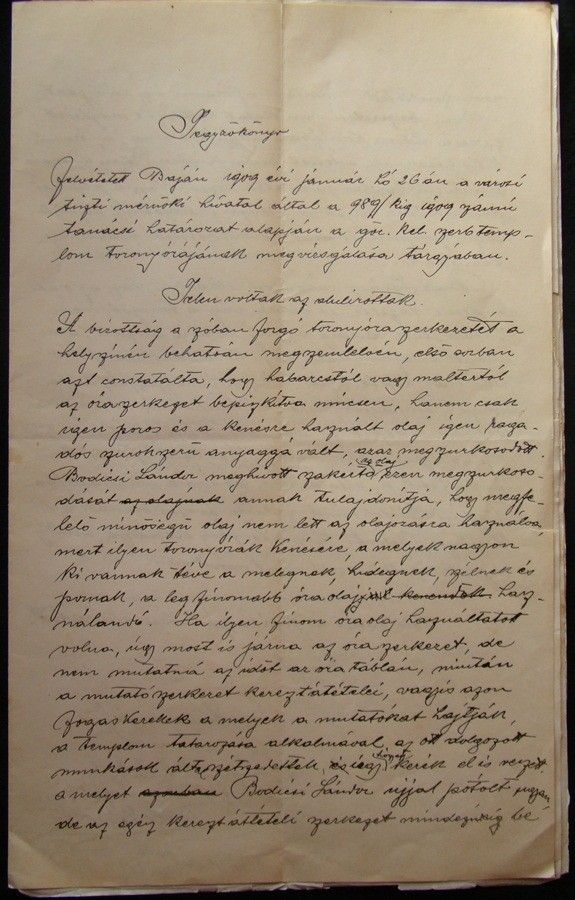 Jegyzőkönyv
Felvétetett Baján 1909 évi január hó 26 án a városi
tiszti mérnöki hivatal által a 989/kig 1909 számú
tanácsi határozat alapján a gör. kel. szerb temp-
lom toronyórájának megvizsgálása tárgyában.
Jelen voltak az alulirottak.
A bizottság a szóban forgó toronyóra szerkezetét a
helyszínén behatóan megszemlélvén, első sorban
azt constatálta, hogy habarcstól vagy maltertól
az óraszerkezet bepiszkítva nincsen, hanem csak
igen poros és a kenésre használt olaj igen raga-
dós szurokszerű anyaggá vált, azaz megszurkosodott.
Bodicsi Sándor meghivott szakértő az olaj ezen megszurkoso-
dását az olajnak annak tulajdonítja, hogy megfe-
lelő minőségű olaj nem lett az olajozásra használva,
mert ilyen toronyórák kenésére, a melyek nagyon
ki vannak téve a melegnek, hidegnek, szélnek és
pornak, a leg finomabb óra olaj kenendők hasz-
nálandó. Ha ilyen finom óra olaj használtatott
volna, úgy most is járna az óra szerkezet, de
nem mutatná az időt az óra táblán, miután
a mutató szerkezet keresztátételei, vagyis azon
fogaskerekek a melyek a mutatókat hajtják,
a templom tatarozása alkalmával az ott dolgozott
munkások által szétszedettek, és egy kerék el is veszett
a melyet azonban Bodicsi Sándor ujjal pótolt ugyan
de az egész keresztátételi szerkezet mindezideig be